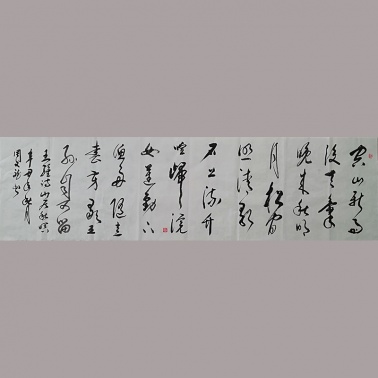 空山新雨
後天氣
晚来秋明
月松间
照清泉
石上流竹
喧歸浣
女蓮動下
渔舟随意
春芳歇王
孙自可留
王维诗山居秋暝
辛丑年秋月